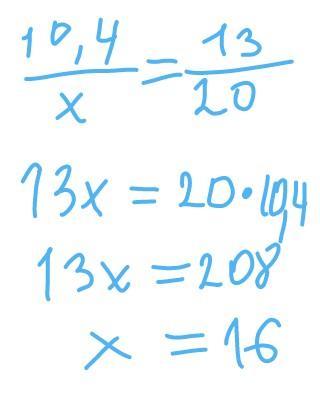 10,4/x = 13/20
13x = 20·10,4
13x = 208
x = 16